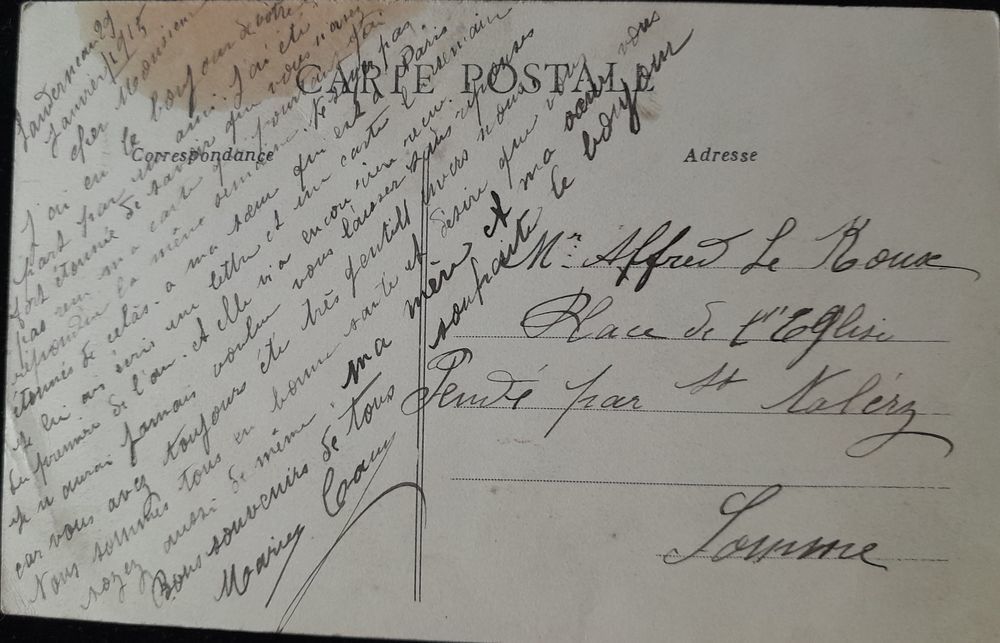 CARTE POSTALE
Correspondance
Adresse
Landerneau 29
Janvier 1915
cher Monsieur
J'ai eu le bonjour de votre
part par son ami. J'ai été
fort étonnée de savoir que vous n'avez
pas reçu ma carte pourtant j'ai
répondu la même semaine. Ne soyez pas
étonnés de celàs. a ma sœur qui est a Paris
je lui as écris une lettre et une carte l semain
du premier de l'an. et elle n'a encore rien reçu.
je n'aurai jamais voulu vous laisser sans réponses
car vous avez toujours été très gentils envers nous.
Nous sommes tous en bonne santé et désire que vous
soyez aussi de même. ma mère et ma sœur vous
souhaite le bonjour
Bons souvenirs de tous
Marie
Mr. Alfred Le Roux
Place de l'Eglise
Pendé par St Valérz
Somme